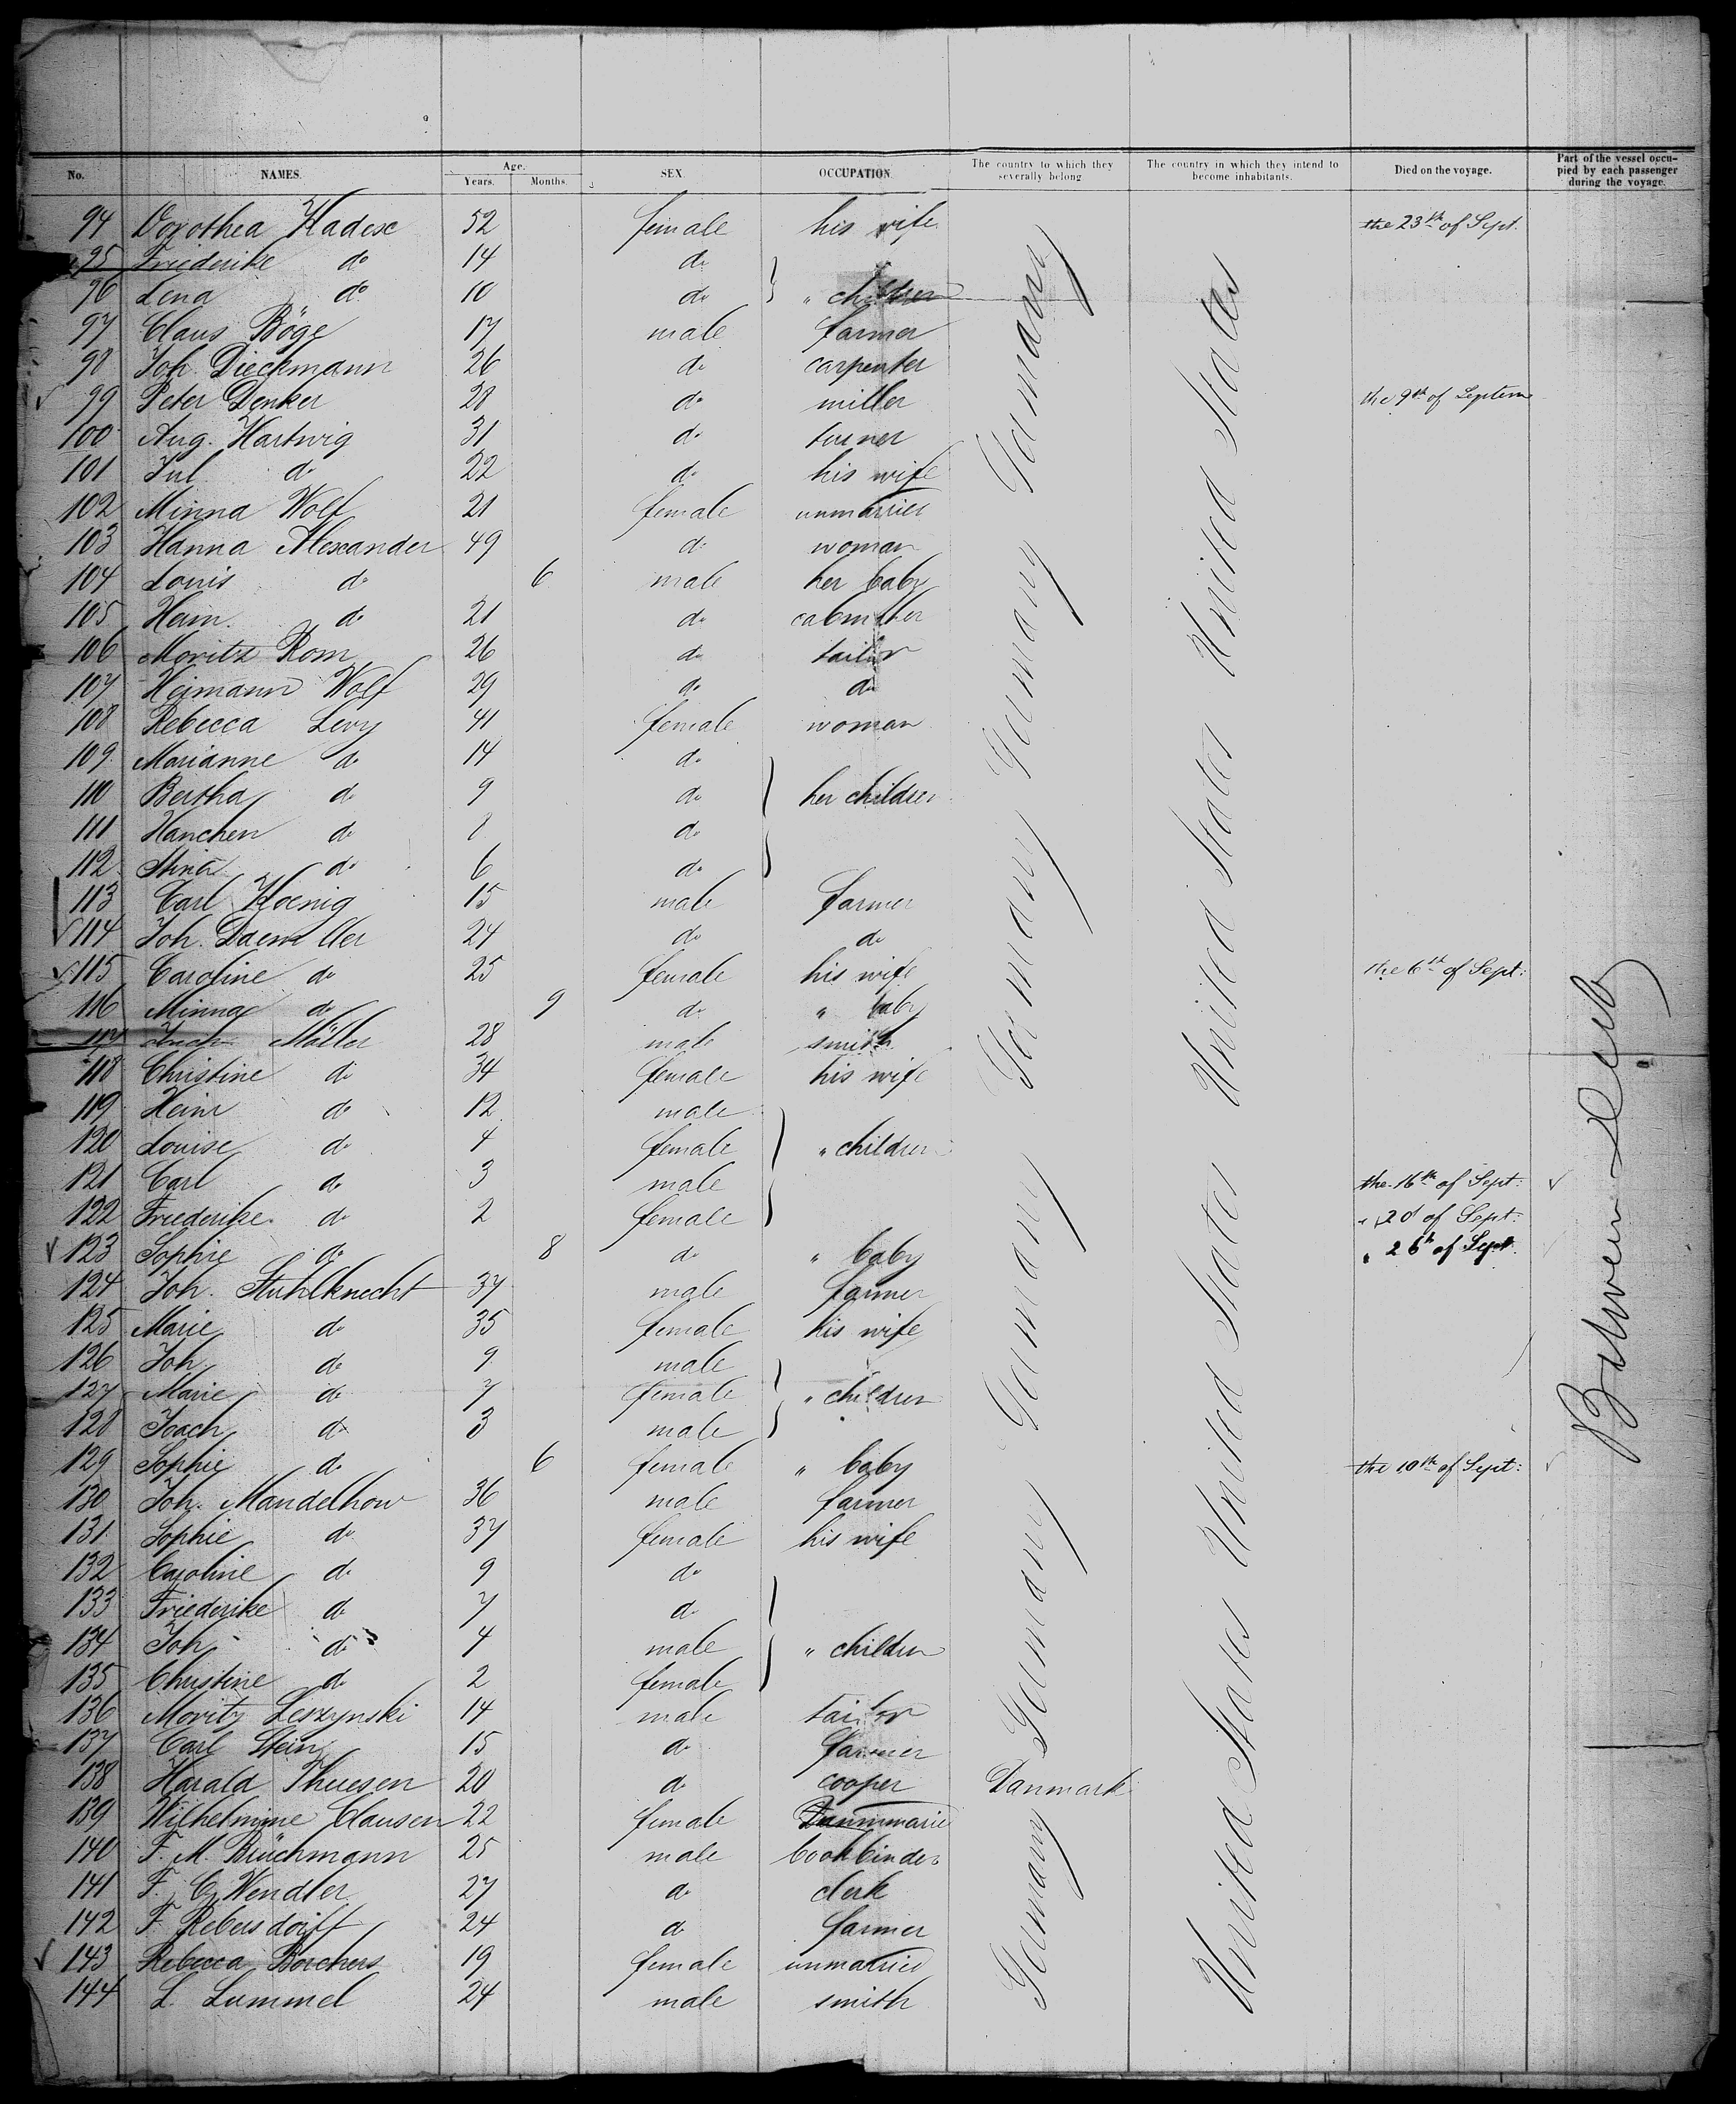 No. NAMES. Age. Years. Months. SEX. OCCUPATION. The country to which they severally belong. The country in which they intend to become inhabitants. Died on the voyage. Part of the vessel occupied by each passenger during the voyage.
94 Dorothea 52 female his wife the 23th of Sept.
95 Friederike do 14 do
96 Lena do 10 do " children
97 Claus Böge 17 male farmer
98 Joh. Dieckmann 26 do carpenter
99 Peter Denker 28 do miller the 9th of Septem
100 Aug. Hartwig 31 do turner
101 Jul. do 22 do his wife
102 Minna Wolf 21 female unmarried
103 Hanna Alexander 49 do woman
104 Louis do 6 male her baby
105 Hein. do 21 do
106 Moritz Rom 26 do tailor
107 Heimann Wolf 29 do do
108 Rebecca Levy 41 female woman
109 Marianne do 14 do
110 Bertha do 9 do her children
111 Hanchen do 8 do
112 do 6 do
113 Carl Koenig 15 male farmer
114 Joh. 24 do do
115 Caroline do 25 female his wife the 6th of Sept:
116 Minna do 9 do " baby
117 Möller 28 male smith
118 Christine do 34 female his wife
119 Heinr do 12 male
120 Louise do 4 female " children
121 Carl do 3 male the 16th of Sept:
122 Friederike do 2 female " 20 of Sept:
123 Sophie do 8 do " baby " 26th of Sept.
124 Joh. Stuhlknecht 37 male farmer
125 Marie do 35 female his wife
126 Joh. do 9 male
127 Marie do 7 female " children
128 Joach do 3 male
129 Sophie do 6 female " baby the 10th of Sept:
130 Joh. Mandelkow 36 male farmer
131 Sophie do 37 female his wife
132 Caroline do 9 do
133 Friederike do 7 do
134 Joh. do 4 male " children
135 Christine do 2 female
136 Moritz Leszynski 14 male tailor
137 Carl Stein 15 do farmer
138 Harald Thuesen 20 do cooper Danmark
139 Wilhelmine Clausen 22 female
140 F. M. Brüchmann 25 male bookbinder
141 F. C. Wendler 27 do clerk
142 F. Rebersdorff 24 do farmer
143 Rebecca Borchers 19 female unmarried
144 L. Lummel 24 male smith
Germany Germany Germany Germany Germany Germany Germany
United States United States United States United States United States
Between Deck